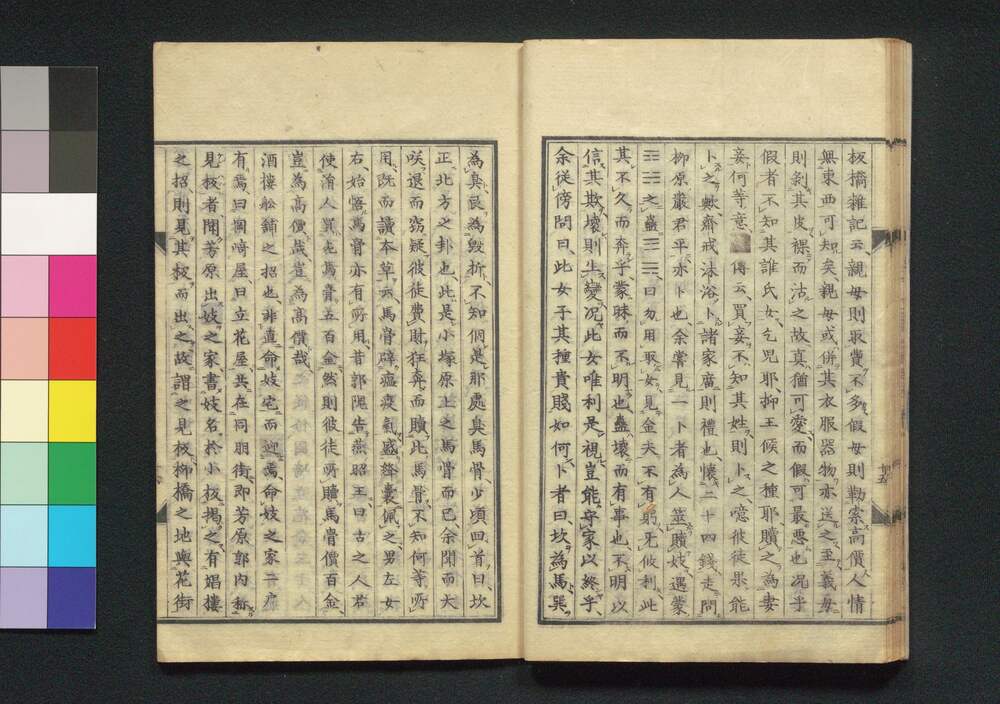 板橋雜記云親母則取費不多假母則勒索高價人情
無東西可知矣親母或併其衣服器物亦送之至義母
則剝其皮裸而沽之故真猶可愛而假可最悪也况乎
假者不知其誰氏女乞児耶抑王候之種耶贖之為妻
妾何等意 傳云買妾不知其姓則卜之噫彼徒果能
卜之歟齋戒沐浴卜諸家廣則禮也懐二十四錢走問
柳原嚴君平亦卜也余嘗見一卜者為人筮贖妓遇蒙
之蠱曰勿用取女見金夫不有躬牙攸利此
其不久而奔乎蒙昧而不明也蠱壊而有事也不明以
信其欺壊則生變况此女唯利是視豈能守家以終乎
余従傍問曰此女子其種貴賤如何卜者曰坎為馬巽
為臭艮為毀折不知個是那處臭馬骨少頃回首曰坎
正北方之卦也此是小塚原上之馬骨而已余聞而大
咲退而窃疑彼徒費財狂奔而贖此馬骨不知何等所
用既而讀本草云馬骨辟瘟疫氣盛絳囊佩之男左女
右始悟馬骨亦有所用昔郭隗告燕昭王曰古之人君
使涓人買死馬骨五百金然則彼徒所贖馬骨價百金
豈為高價哉豈為高價哉
酒樓舩舖之招也非直命妓宅而迎焉命妓之家一戸
有焉曰岡崎屋曰立花屋共在同朋街即芳原郭内稱
見板者聞芳原出妓之家書妓名於小板掲之有娼樓
之招則見其板而出之故謂之見板柳橋之地與花街